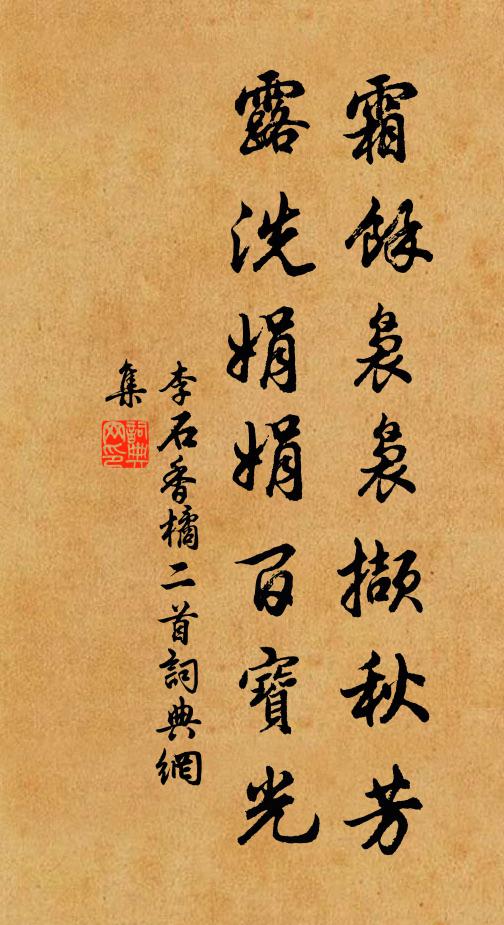 霜餘裊裊擷秋芳
露洗娟娟百寶光
李石香橘二首詞典網
集
詞典
网印